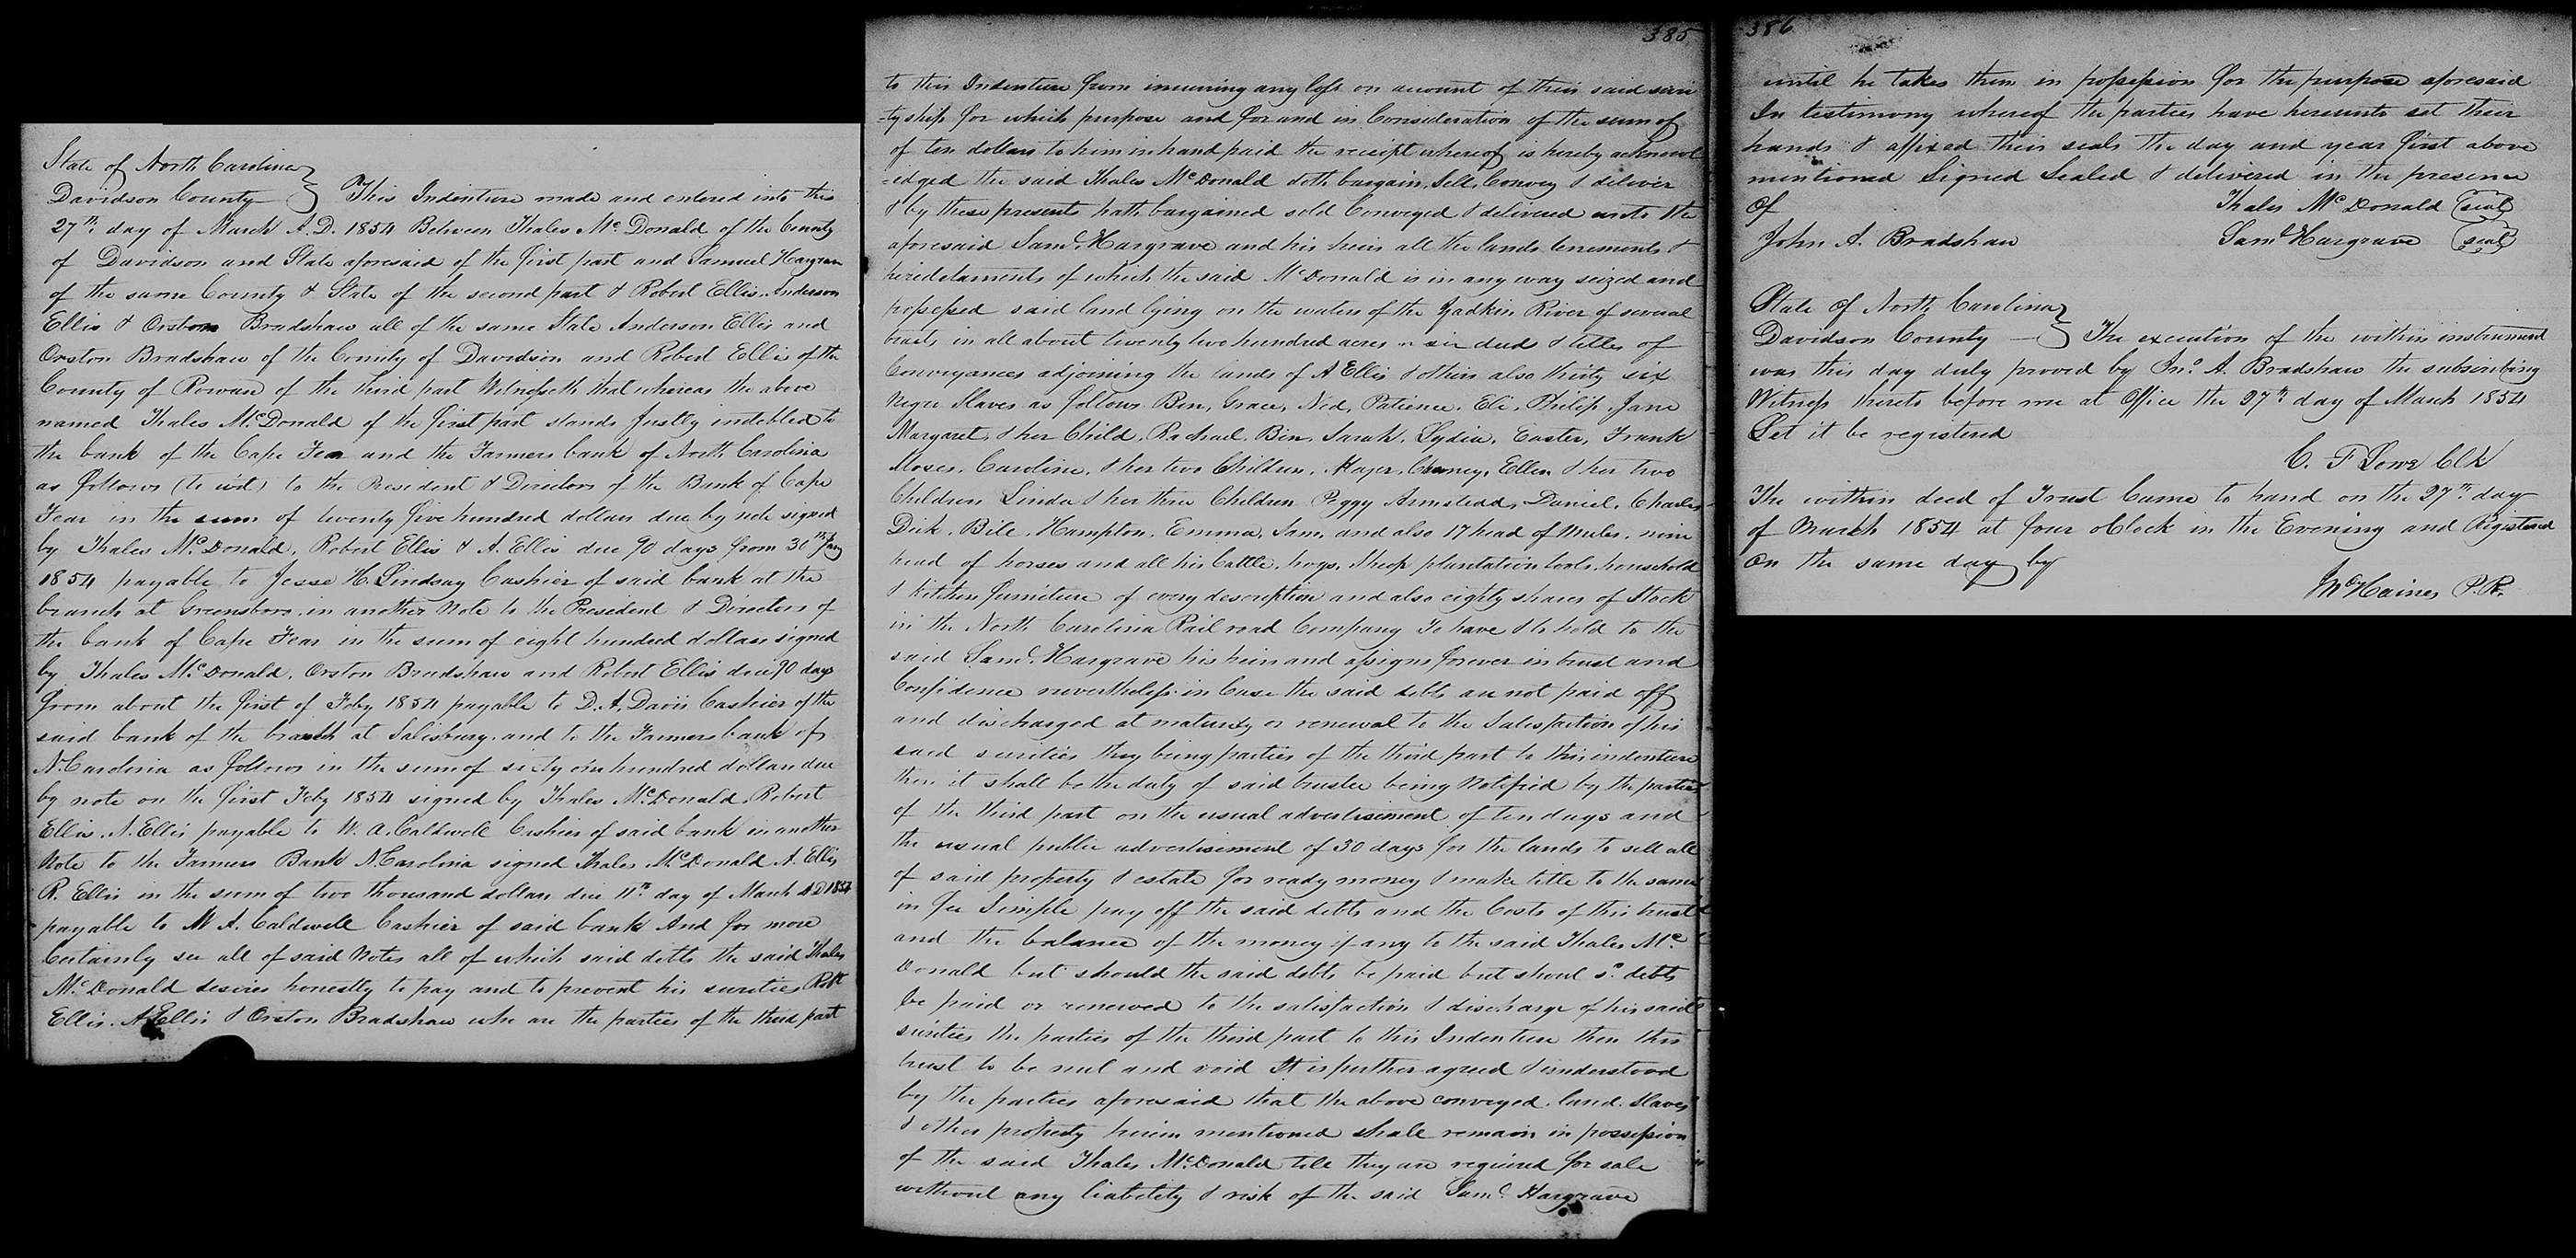 State of North Carolina
Davidson County This Indenture made and entered into this
27th day of March A.D. 1854 Between Thales McDonald of the County
of Davidson and State aforesaid of the first part and Samuel Hargrave
of the same County & State of the second part & Robert Ellis, Anderson
Ellis & Orston Bradshaw all of the same State Anderson Ellis and
Orston Bradshaw of the County of Davidson and Robert Ellis of the
County of Rowan of the third part Witnesseth that whereas the above
named Thales McDonald of the first part stands justly indebted to
the bank of the Cape Fear and the Farmers bank of North Carolina
as follows (to wit) to the President & Directors of the Bank of Cape
Fear in the sum of twenty five hundred dollars due by note signed
by Thales McDonald, Robert Ellis & A. Ellis due 90 days from 30th Jany
1854 payable to Jesse H. Lindsay Cashier of said bank at the
branch at Greensboro in another Note to the President & Directors of
the bank of Cape Fear in the sum of eight hundred dollars signed
by Thales McDonald, Orston Bradshaw and Robert Ellis due 90 days
from about the first of Feby 1854 payable to D. A. Davis Cashier of the
said bank of the branch at Salisbury and to the Farmers bank of
N. Carolina as follows in the sum of sixty one hundred dollars due
by note on the first Feby 1854 signed by Thales McDonald, Robert
Ellis. A. Ellis payable to W. A. Caldwell Cashier of said bank in another
Note to the Farmers Bank N. Carolina signed Thales McDonald A. Ellis
R. Ellis in the sum of two thousand dollars due 11th day of March AD 1854
payable to W A. Caldwell Cashier of said bank And for more
Certainly see all of said Notes all of which said debts the said Thales
McDonald desires honestly to pay and to prevent his sureties Robt
Ellis. A Ellis & Orston Bradshaw who are the parties of the third part
385
to this Indenture from incurring any loss on account of their said suri
=tyship for which purpose and for and in Consideration of the sum of
of ten dollars to him in hand paid the receipt whereof is hereby acknowl
=edged the said Thales McDonald doth bargain, Sell, Convey & deliver
& by these presents hath bargained sold Conveyed & delivered unto the
aforesaid Saml Hargrave and his heirs all the lands tenements &
heredetaments of which the said McDonald is in any way seized and
possessed said land lying on the waters of the Yadkin River of several
tracts in all about twenty two hundred acres deeds & titles of
Conveyances adjoining the lands of A Ellis & others also thirty six
Negro Slaves as follows Ben, Grace, Ned, Patience, Eli, Philip, Jane
Margaret, & her Child, Rachael, Ben, Sarah, Lydia, Easter, Frank
Moses, Caroline, & her two Children, Major, Ellen & her two
Children Linda & her three Children Peggy Armstedd, Daniel, Charles
Dick, Bill, Hampton, Emma, Sam, and also 17 head of Mules, nine
head of horses and all his Cattle, hogs, Sheep plantation tools, household
& kitchen furniture of every description and also eighty shares of Stock
in the North Carolina Rail road Company To have & to hold to the
said Saml Hargrave his heirs and assigns forever in trust and
Confidence nevertheless in Case the said debts are not paid off
and discharged at maturity or renewal to the Satisfaction of his
said sureties they being parties of the third part to this indenture
then it shall be the duty of said trustee being Notified by the parties
of the third part on the usual advertisement of ten days and
the usual public advertisement of 30 days for the lands to sell all
of said property & estate for ready money & make title to the same
in fee Simple pay off the said debts and the Costs of this trust
and the balance of the money if any to the said Thales Mc
Donald but should the said debts be paid but shoul sd debts
be paid or renewed to the satisfaction & discharge of his said
sureties the parties of the third part to this Indenture then this
trust to be nul and void It is further agreed & understood
by the parties aforesaid that the above conveyed land. Slaves
& other property herein mentioned shall remain in possession
of the said Thales McDonald till they are required for sale
without any liability & risk of the said Saml Hargrave
386
until he takes them in possession for the purpose aforesaid
In testimony whereof the parties have hereunto set their
hands & affixed their seals the day and year first above
mentioned Signed Sealed & delivered in the presence
of Thales McDonald (seal)
John A. Bradshaw Saml Hargrave (seal)
State of North Carolina
Davidson County The execution of the within instrument
was this day duly proved by Jno. A. Bradshaw the subscribing
Witness thereto before me at Office the 27th day of March 1854
Let it be registered
C. F Lowe Clk
The within deed of Trust Came to hand on the 27th day
of March 1854 at four oClock in the Evening and Registered
on the same day by
Haines P.R.